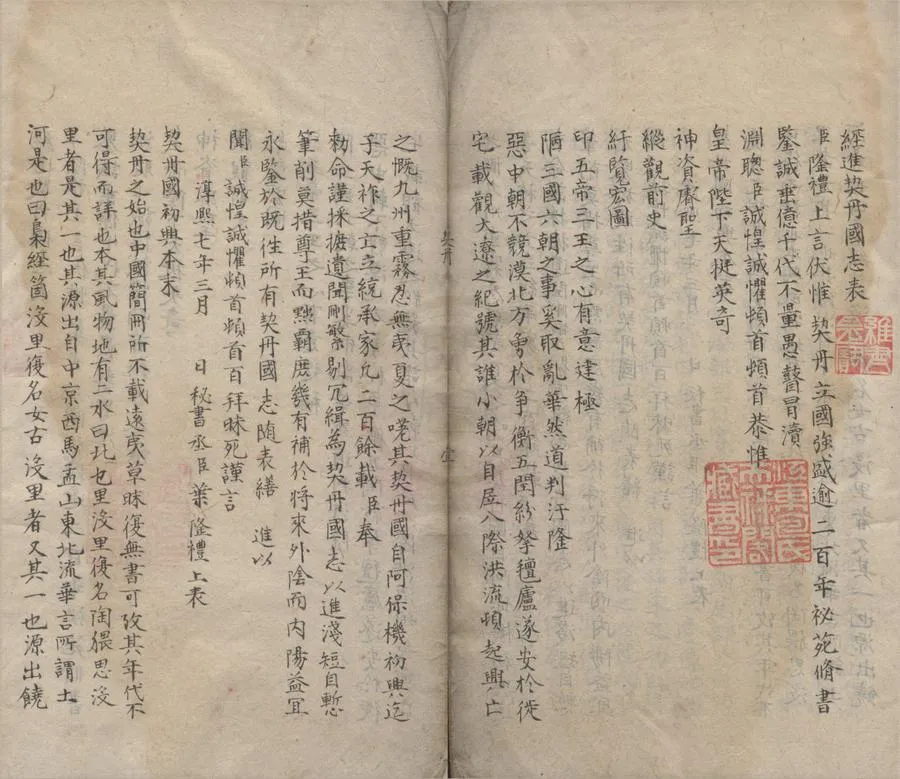 經進契丹國志表
臣隆禮上言伏惟 契丹立國強盛逾二百年祕苑脩書
鑒誠垂億千代不量愚瞽冒瀆
淵聰臣誠惶誠懼頓首頓首恭惟
皇帝陛下天挺英奇
神資睿聖
縱觀前史
紆覽宏圖
印五帝三王之心有意建極
陋三國六朝之事奚取亂華然道判汙隆
惡中朝不競漠北方勇於爭衡五閏紛拏氊廬遂安於徙
宅載觀大遼之紀號其誰小朝以自居八際洪流頓起興亡
契丹
之慨九州重霧忍無夷夏之嗟其契丹國自阿保機初興迄
于天祚之亡立統承家凡二百餘載臣奉
勑命謹採摭遺聞刪繁剔冗緝為契丹國志以進淺短自慙
筆削莫措尊王而黜霸庶幾有補於將來外陰而內陽益冝
永鑒於既往所有契丹國志隨表繕 進以
聞臣誠惶誠懼頓首頓首百拜昧死謹言
淳熙七年三月 日秘書丞臣葉隆禮上表
契丹國初興本末
契丹之始也中國簡冊所不載遠夷草昧復無書可攷其年代不
可得而詳也本其風物地有二水曰北也里沒里復名陶猥思沒
里者是其一也其源出自中京西馬盂山東北流華言所謂土
河是也曰裊經箇沒里復名女古沒里者又其一也源出饒